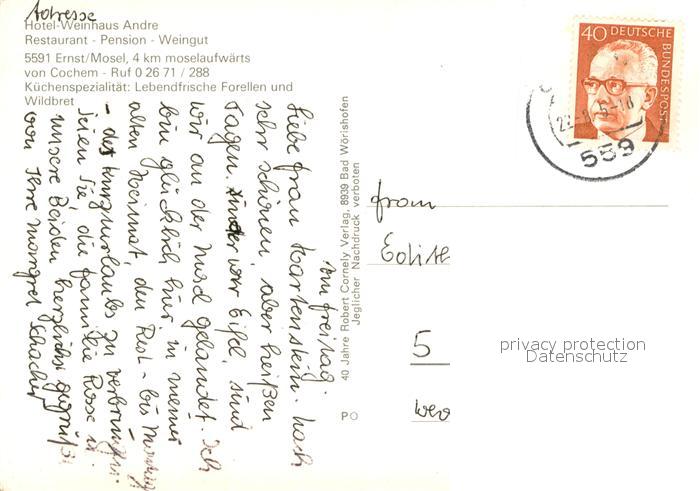 Adresse
Hotel-Weinhaus Andre
Restaurant - Pension - Weingut
5591 Ernst/Mosel, 4 km moselaufwärts
von Cochem - Ruf 0 26 71 / 288
Küchenspezialität: Lebendfrische Forellen und
Wildbret
am Freitag.
Liebe Frau Hartenstein. Nach
sehr schönen, aber heißen
Tagen in der Eifel, sind
wir an der Mosel gelandet. Ich
bin glücklich hier, in meiner
alten Heimat, den Rest - bis Montag
- des Kurzurlaubs zu verbringen.
Ihnen Sie, die Familie Rosse u.
unsere Beiden herzlichst gegrüßt
von Ihrer Margret Schacher
40 Jahre Robert Cornely Verlag, 8939 Bad Wörishofen
Jeglicher Nachdruck verboten
40 DEUTSCHE
BUNDESPOST
559
Frau
Edith
5
Wer
PO
privacy protection
Datenschutz